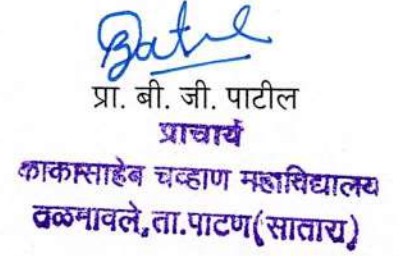 प्रा. बी. जी. पाटील
प्राचार्य
काकासाहेब चव्हाण महाविद्यालय
तळमावले,ता.पाटण(सातारा)